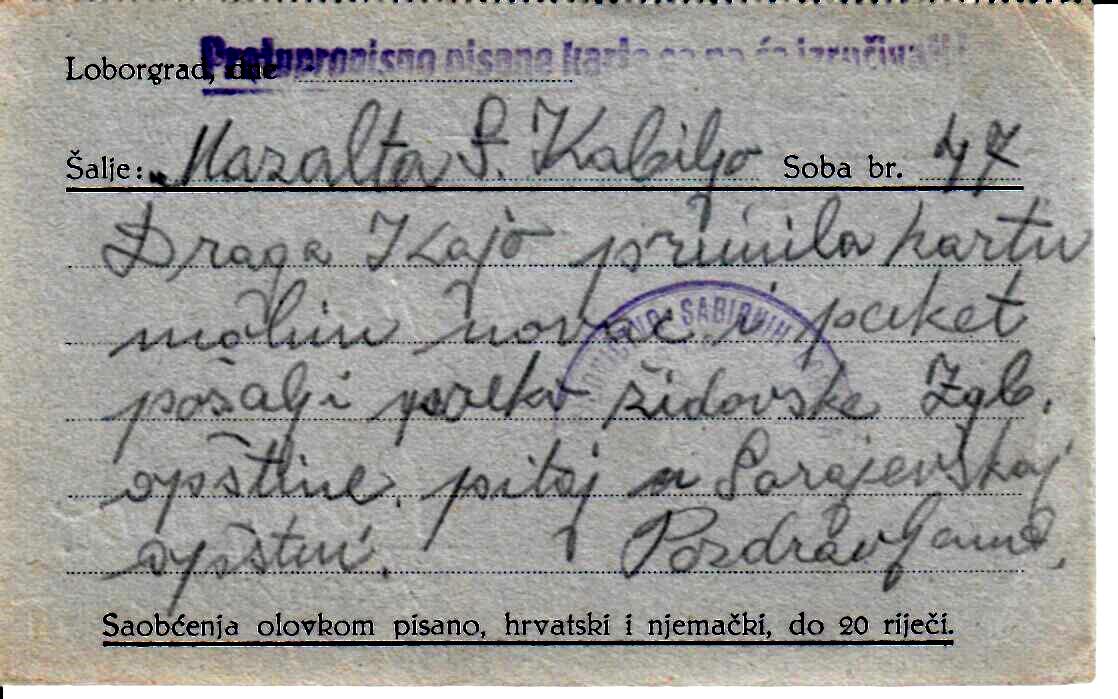 Protupropisno pisane karte se ne će izručivati
Loborgrad, dne
Šalje: Mazalta S. Kabiljo Soba br. 47
Draga Kajo primila kartu
molim novac i paket
pošalji preko židovske Zgb.
opštine, pitaj u Sarajevskoj
opštini. Pozdravljamo,
SABIRNIH
Saobćenja olovkom pisano, hrvatski i njemački, do 20 riječi.